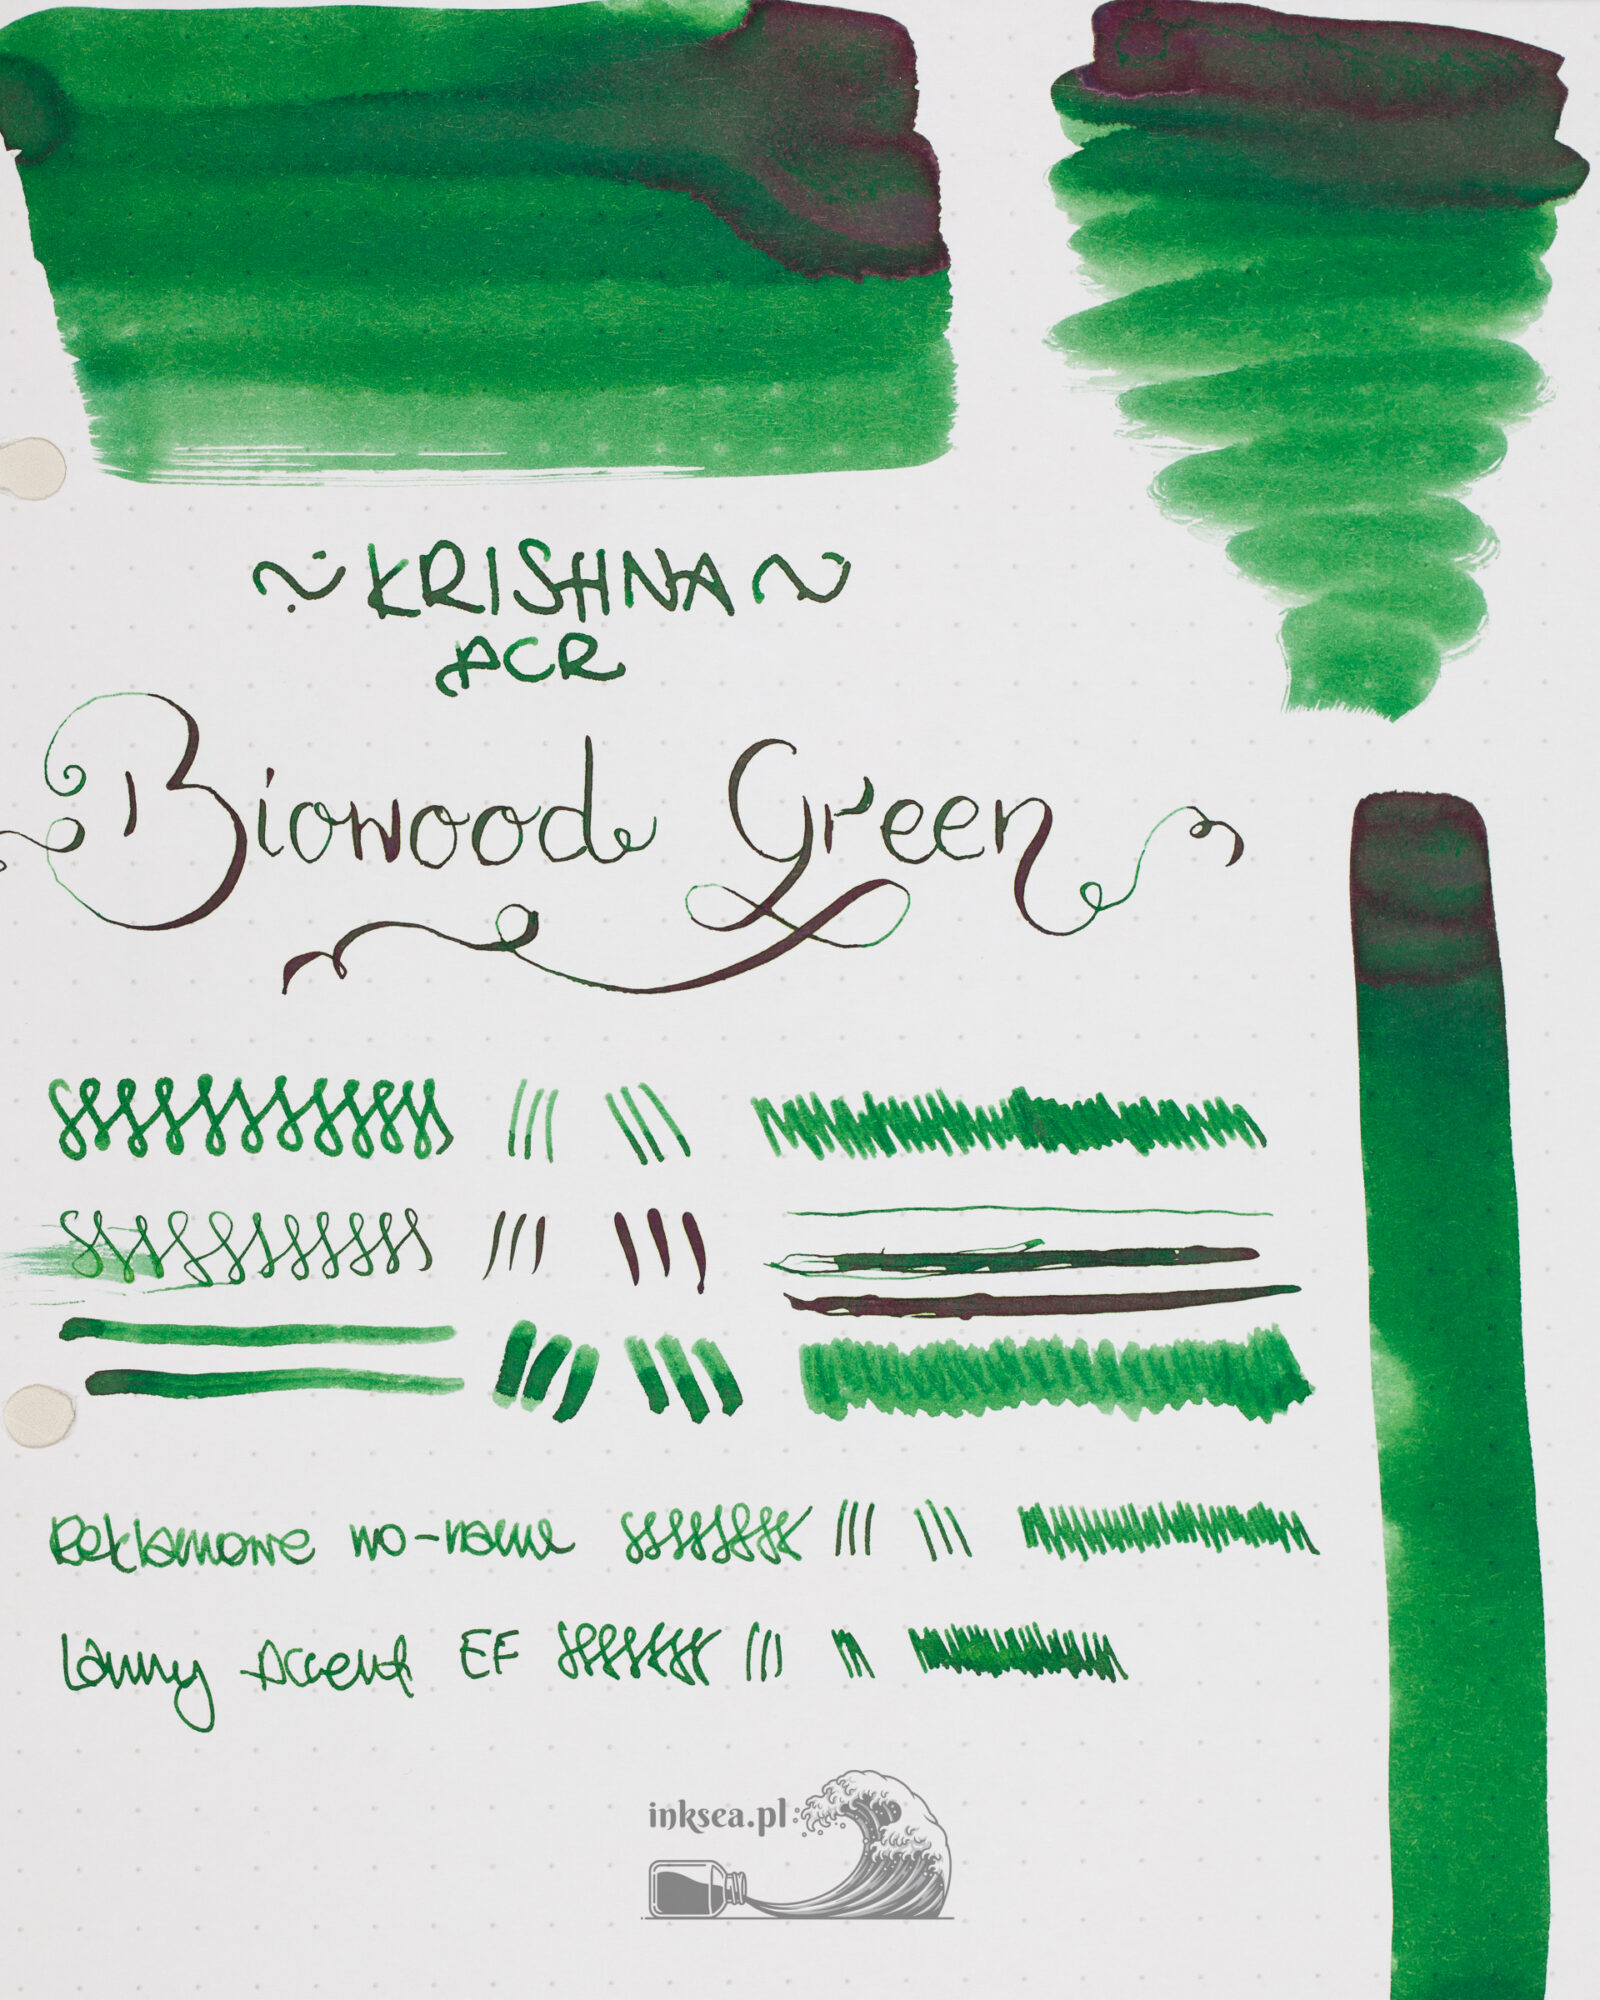 ~ KRISHNA ~
ACR
Biowood Green
Reklamowe no-name
Lamy Accent EF
inksea.pl